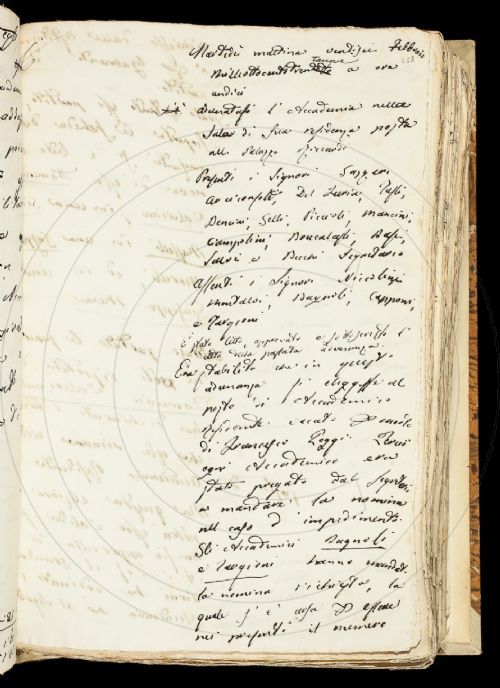 Martedì mattina undici Febbraio
Milleottocentotrentanove a ore
undici
adunatasi l'Accademia nelle
Salar di Sua residenza posta
nel Palazzo Riccardi
Presenti i Signori
Arciconsolo, Del Furia,
Bencini, Gelli, Piccioli, Mancini,
Ciampolini, Boucatassi,
Salvi e Becchi Segretario
Assenti i Signori Niccolini
Montalvi, Bagnoli, Capponi,
e Targioni
È stato letto, approvato e sottoscritto l'
atto della passata adunanza
Era stabilito che in questa
adunanza si eleggesse al
posto di Accademico
residente vacato P. morte
di Francesco Poggi. Perciò
ogni Accademico era
stato pregato dal Segretari
a mandare la nomina
nel caso d'impedimento.
Gli Accademici Bagnoli
e Targioni hanno mandat
la nomina richiesta, la
quale s'è
nei presenti il numero